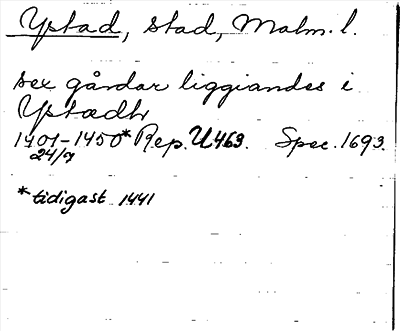 Ystad, stad, Malm. l.
sex gårdar liggiandes i
Ystædh
1401-1450* Rep. U463. Spec. 1693.
24/7
*tidigast 1441